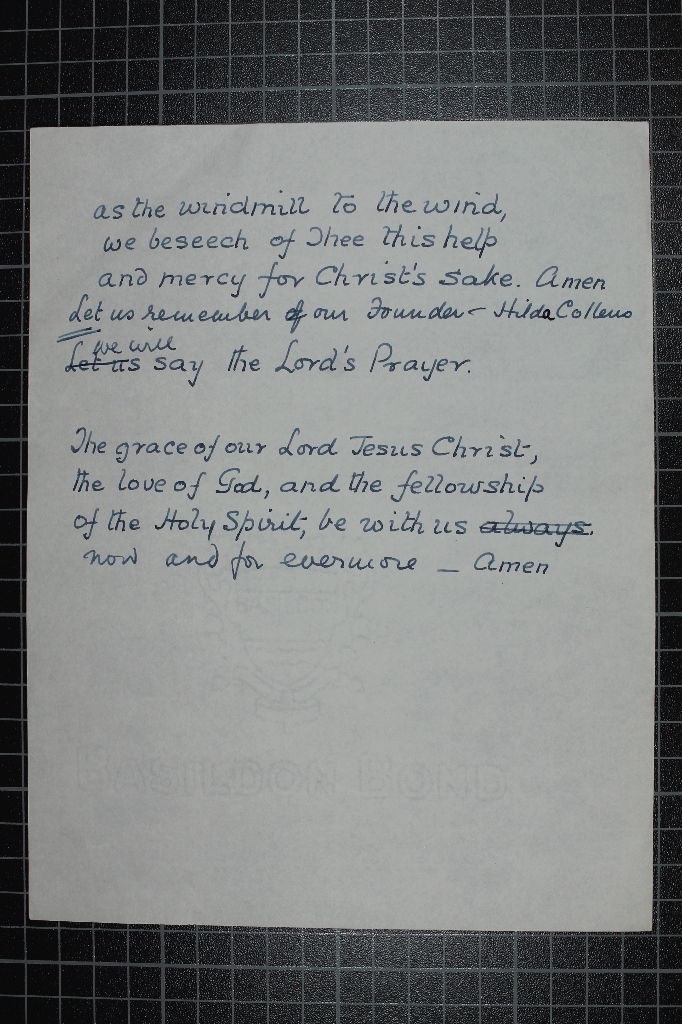 as the windmill to the wind,
we beseech of Thee this help
and mercy for Christ's sake. Amen
Let us remember of our Founder – Hilda Collens
we will
Let us say the Lord's Prayer.
The grace of our Lord Jesus Christ,
the love of God, and the fellowship
of the Holy Spirit, be with us always.
now and for evermore — Amen
BASILDON BOND